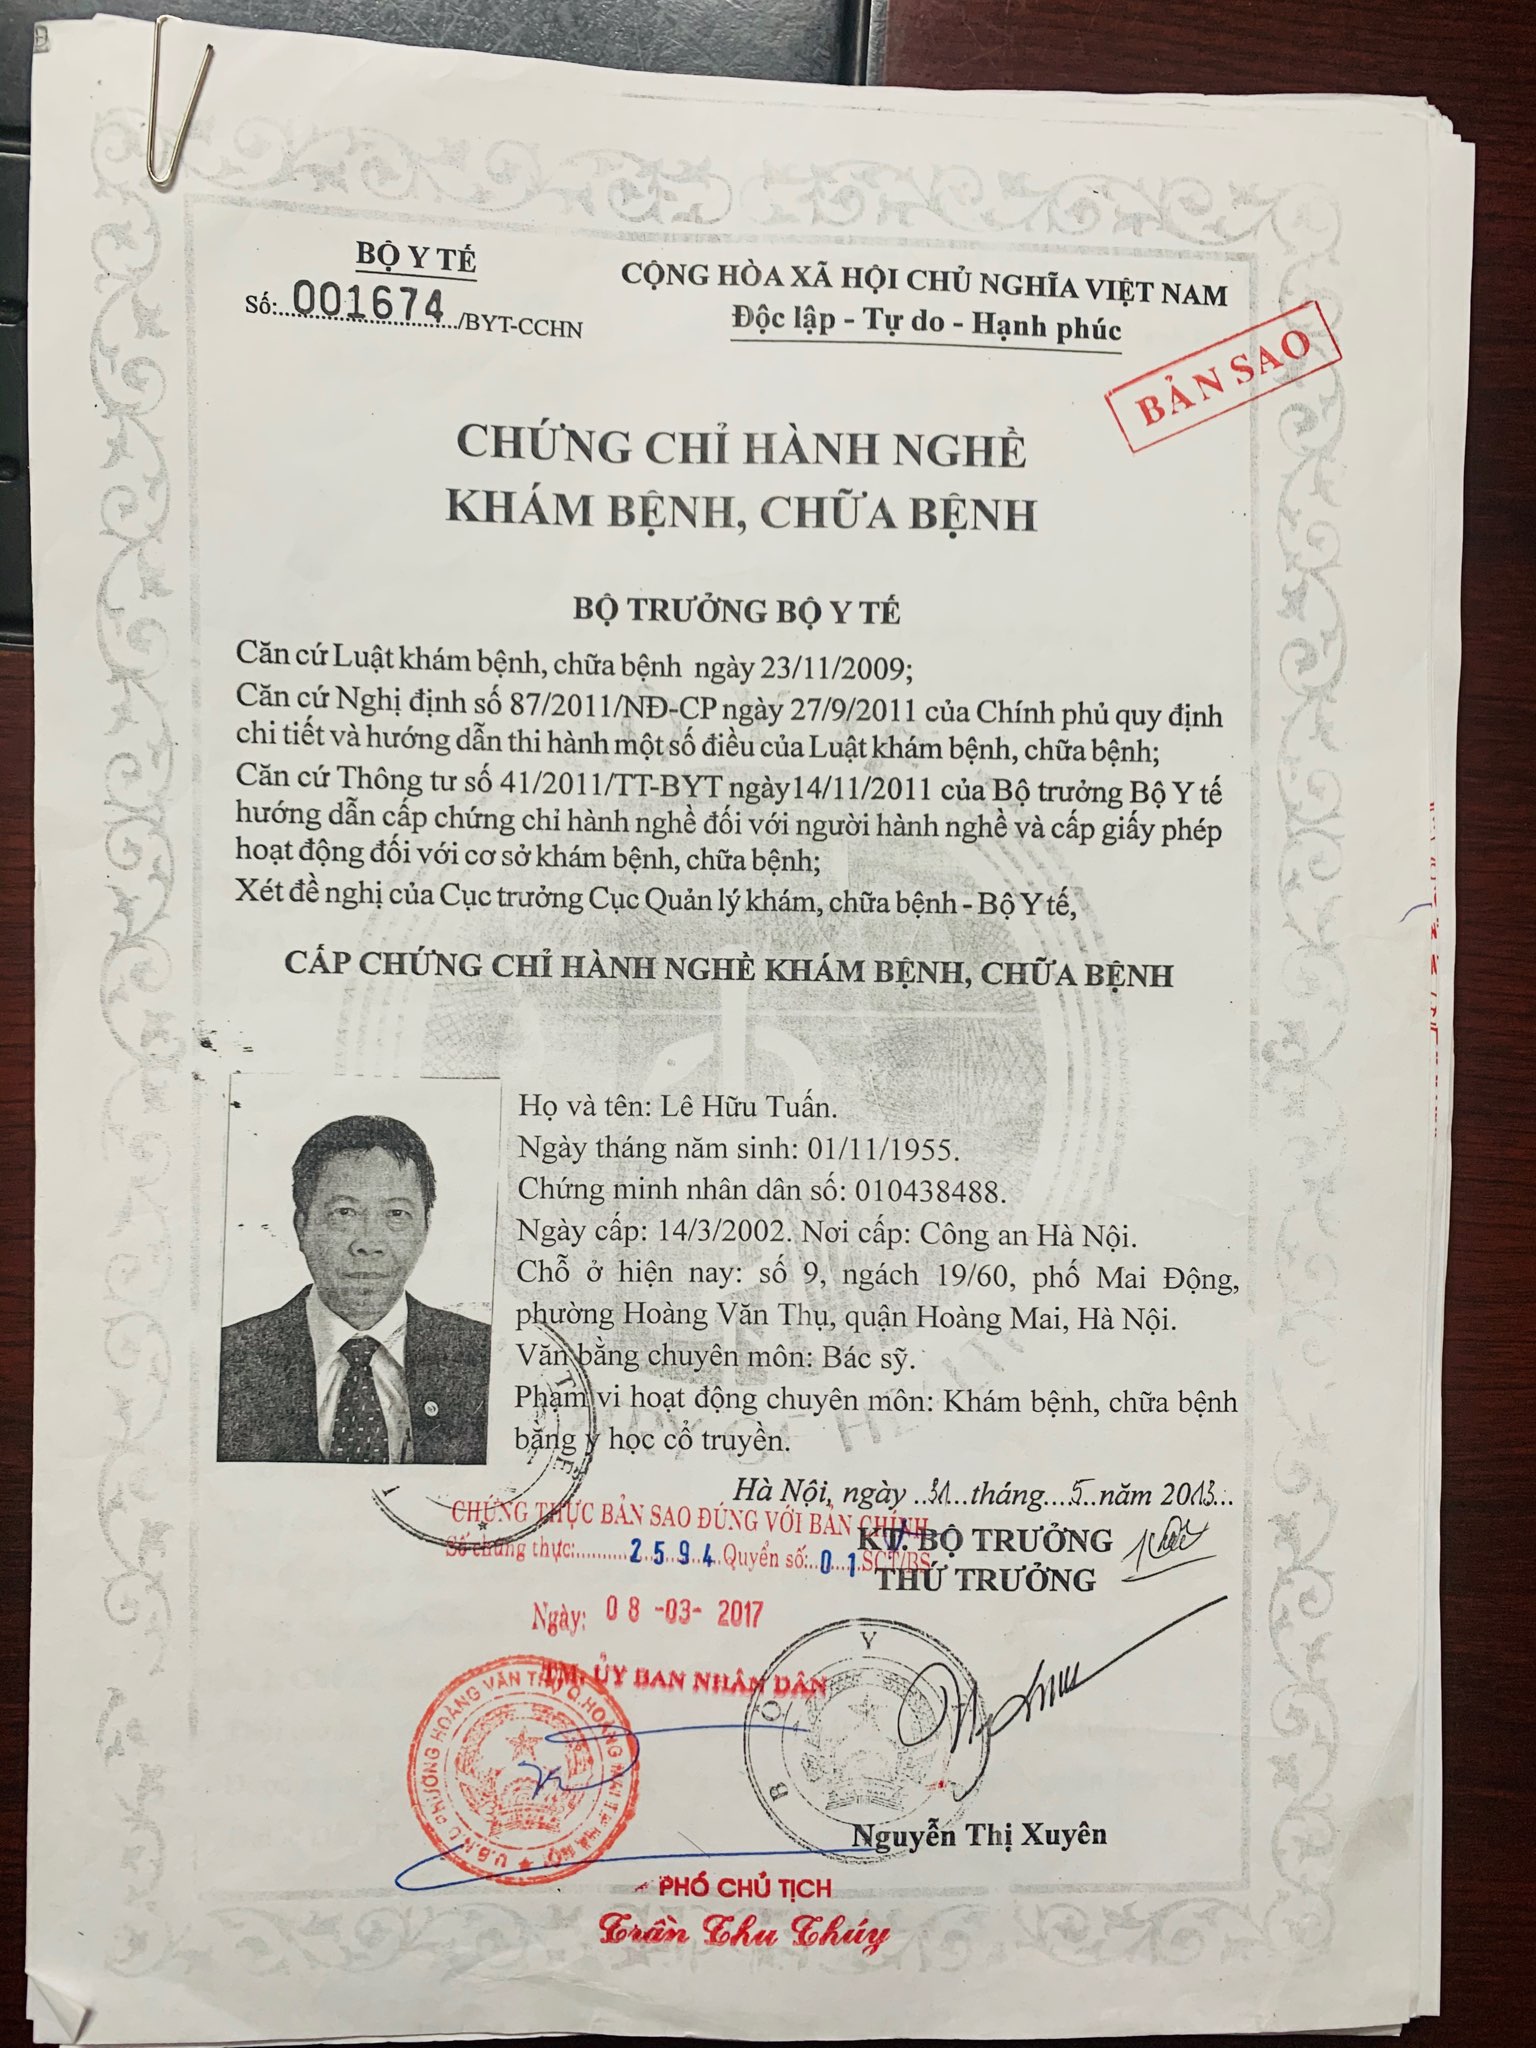 BỘ Y TẾ
Số:...001674.../BYT-CCHN
CỘNG HÒA XÃ HỘI CHỦ NGHĨA VIỆT NAM
Độc lập - Tự do - Hạnh phúc
BẢN SAO
CHỨNG CHỈ HÀNH NGHỀ
KHÁM BỆNH, CHỮA BỆNH
BỘ TRƯỞNG BỘ Y TẾ
Căn cứ Luật khám bệnh, chữa bệnh ngày 23/11/2009;
Căn cứ Nghị định số 87/2011/NĐ-CP ngày 27/9/2011 của Chính phủ quy định
chi tiết và hướng dẫn thi hành một số điều của Luật khám bệnh, chữa bệnh;
Căn cứ Thông tư số 41/2011/TT-BYT ngày14/11/2011 của Bộ trưởng Bộ Y tế
hướng dẫn cấp chứng chỉ hành nghề đối với người hành nghề và cấp giấy phép
hoạt động đối với cơ sở khám bệnh, chữa bệnh;
Xét đề nghị của Cục trưởng Cục Quản lý khám, chữa bệnh - Bộ Y tế,
CẤP CHỨNG CHỈ HÀNH NGHỀ KHÁM BỆNH, CHỮA BỆNH
Họ và tên: Lê Hữu Tuấn.
Ngày tháng năm sinh: 01/11/1955.
Chứng minh nhân dân số: 010438488.
Ngày cấp: 14/3/2002. Nơi cấp: Công an Hà Nội.
Chỗ ở hiện nay: số 9, ngách 19/60, phố Mai Động,
phường Hoàng Văn Thụ, quận Hoàng Mai, Hà Nội.
Văn bằng chuyên môn: Bác sỹ.
Phạm vi hoạt động chuyên môn: Khám bệnh, chữa bệnh
bằng y học cổ truyền.
Hà Nội, ngày ..31...tháng....5..năm 2013...
CHỨNG THỰC BẢN SAO ĐÚNG VỚI BẢN CHÍNH
KT. BỘ TRƯỞNG
Số chứng thực:.........2594..Quyển số:..01.SCT/BS
THỨ TRƯỞNG
Ngày: 08 -03- 2017
TM. ỦY BAN NHÂN DÂN
U.B.N.D PHƯỜNG HOÀNG VĂN THỤ Q.HOÀNG MAI T.P HÀ NỘI
BỘ Y
Nguyễn Thị Xuyên
PHÓ CHỦ TỊCH
Trần Thu Thúy